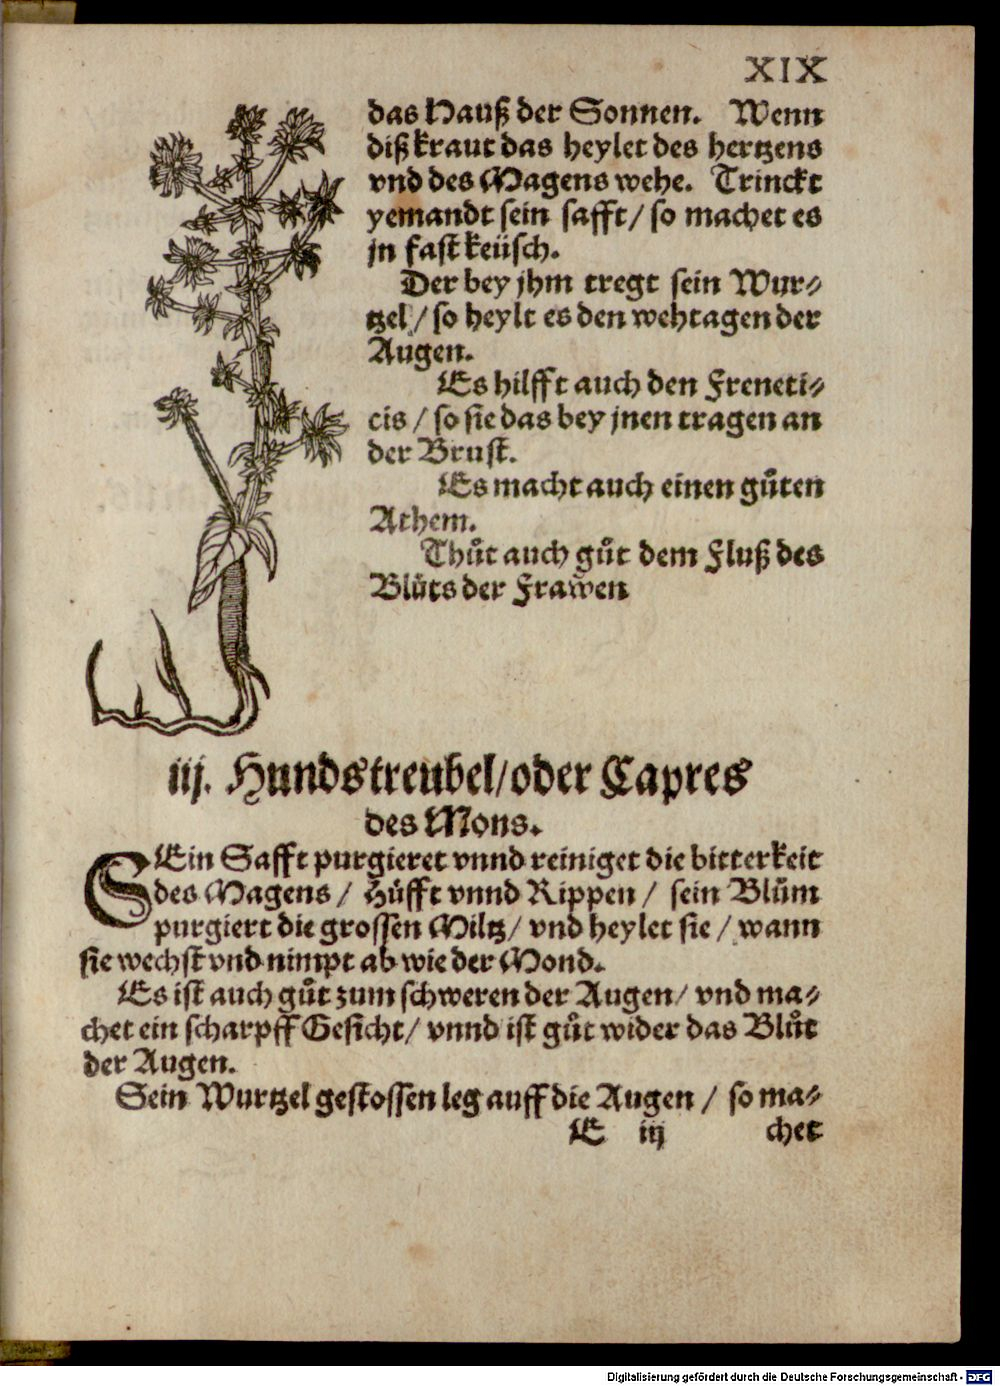 XIX
das Hauß der Sonnen. Wenn
diß kraut das heylet des hertzens
vnd des Magens wehe. Trinckt
yemandt sein safft / so machet es
jn fast keüsch.
Der bey jhm tregt sein Wur⸗
tzel / so heylt es den wehtagen der
Augen.
Es hilfft auch den Freneti⸗
cis / so sie das bey jnen tragen an
der Brust.
Es macht auch einen gůten
Athem.
Thůt auch gůt dem Fluß des
Blůts der Frawen
iij. Hundstreubel / oder Capres
des Mons.
SEin Safft purgieret vnnd reiniget die bitterkeit
des Magens / Hüfft vnnd Rippen / sein Blům
purgiert die grossen Miltz / vnd heylet sie / wann
sie wechst vnd nimpt ab wie der Mond.
Es ist auch gůt zum schweren der Augen / vnd ma⸗
chet ein scharpff Gesicht / vnnd ist gůt wider das Blůt
der Augen.
Sein Wurtzel gestossen leg auff die Augen / so ma⸗
E iij chet
Digitalisierung gefördert durch die Deutsche Forschungsgemeinschaft - DFG